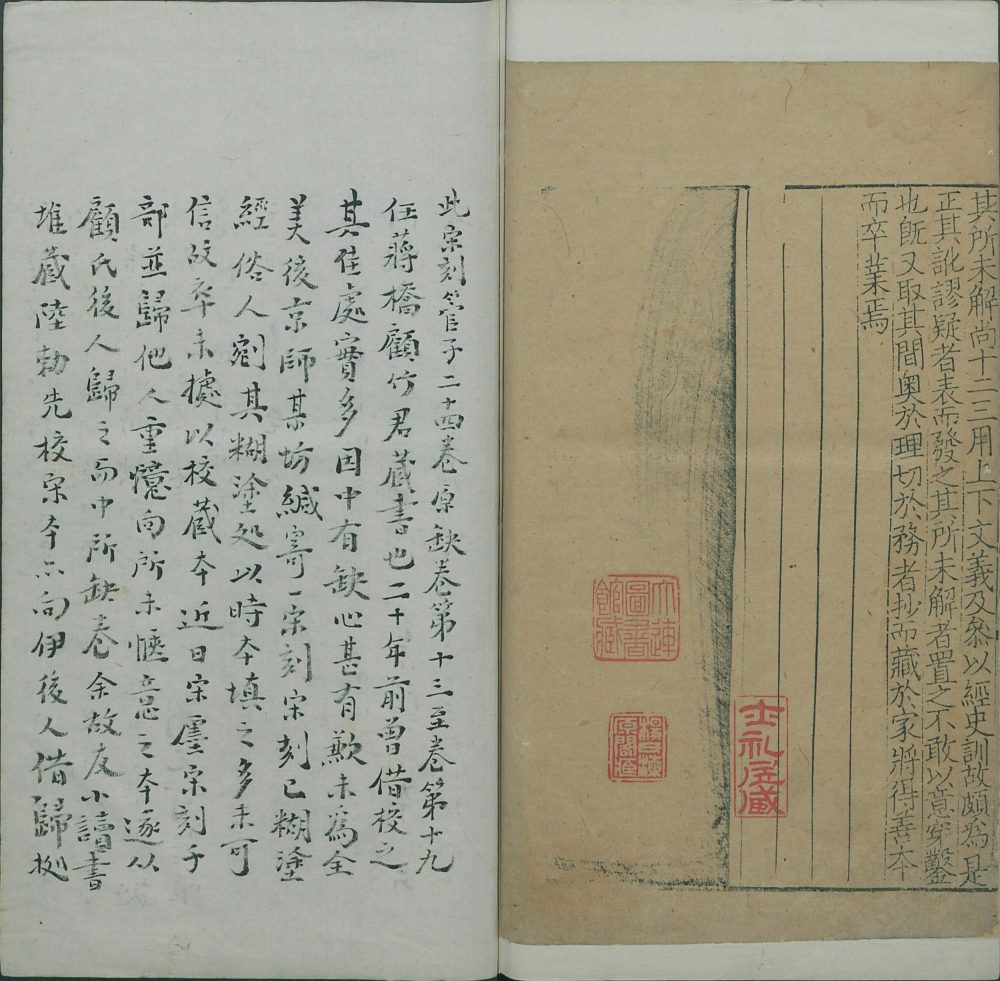 其所未解尚十二三用上下文義及參以經史訓故頗為是
正其訛謬疑者表而發之其所未解者置之不敢以意穿鑿
也旣又取其間奧於理切於務者抄而藏於家將得善本
而卒業焉
士礼居藏
大連圖書館藏
此宋刻管子二十四卷原缺卷第十三至卷第十九
任蔣橋顧竹君藏書也二十年前曾借校之
其佳處實多因中有缺心甚有歉未為全
美後京師某坊緘寄一宋刻宋刻已糊塗
經俗人剜其糊塗処以時本填之多未可
信故卒未據以校藏本近日宋廛宋刻子
部並歸他人重憶向所未愜意之本遂以
顧氏後人歸之而中所缺卷余故友小讀書
堆藏陸勅先校宋本亦向伊後人借歸抄